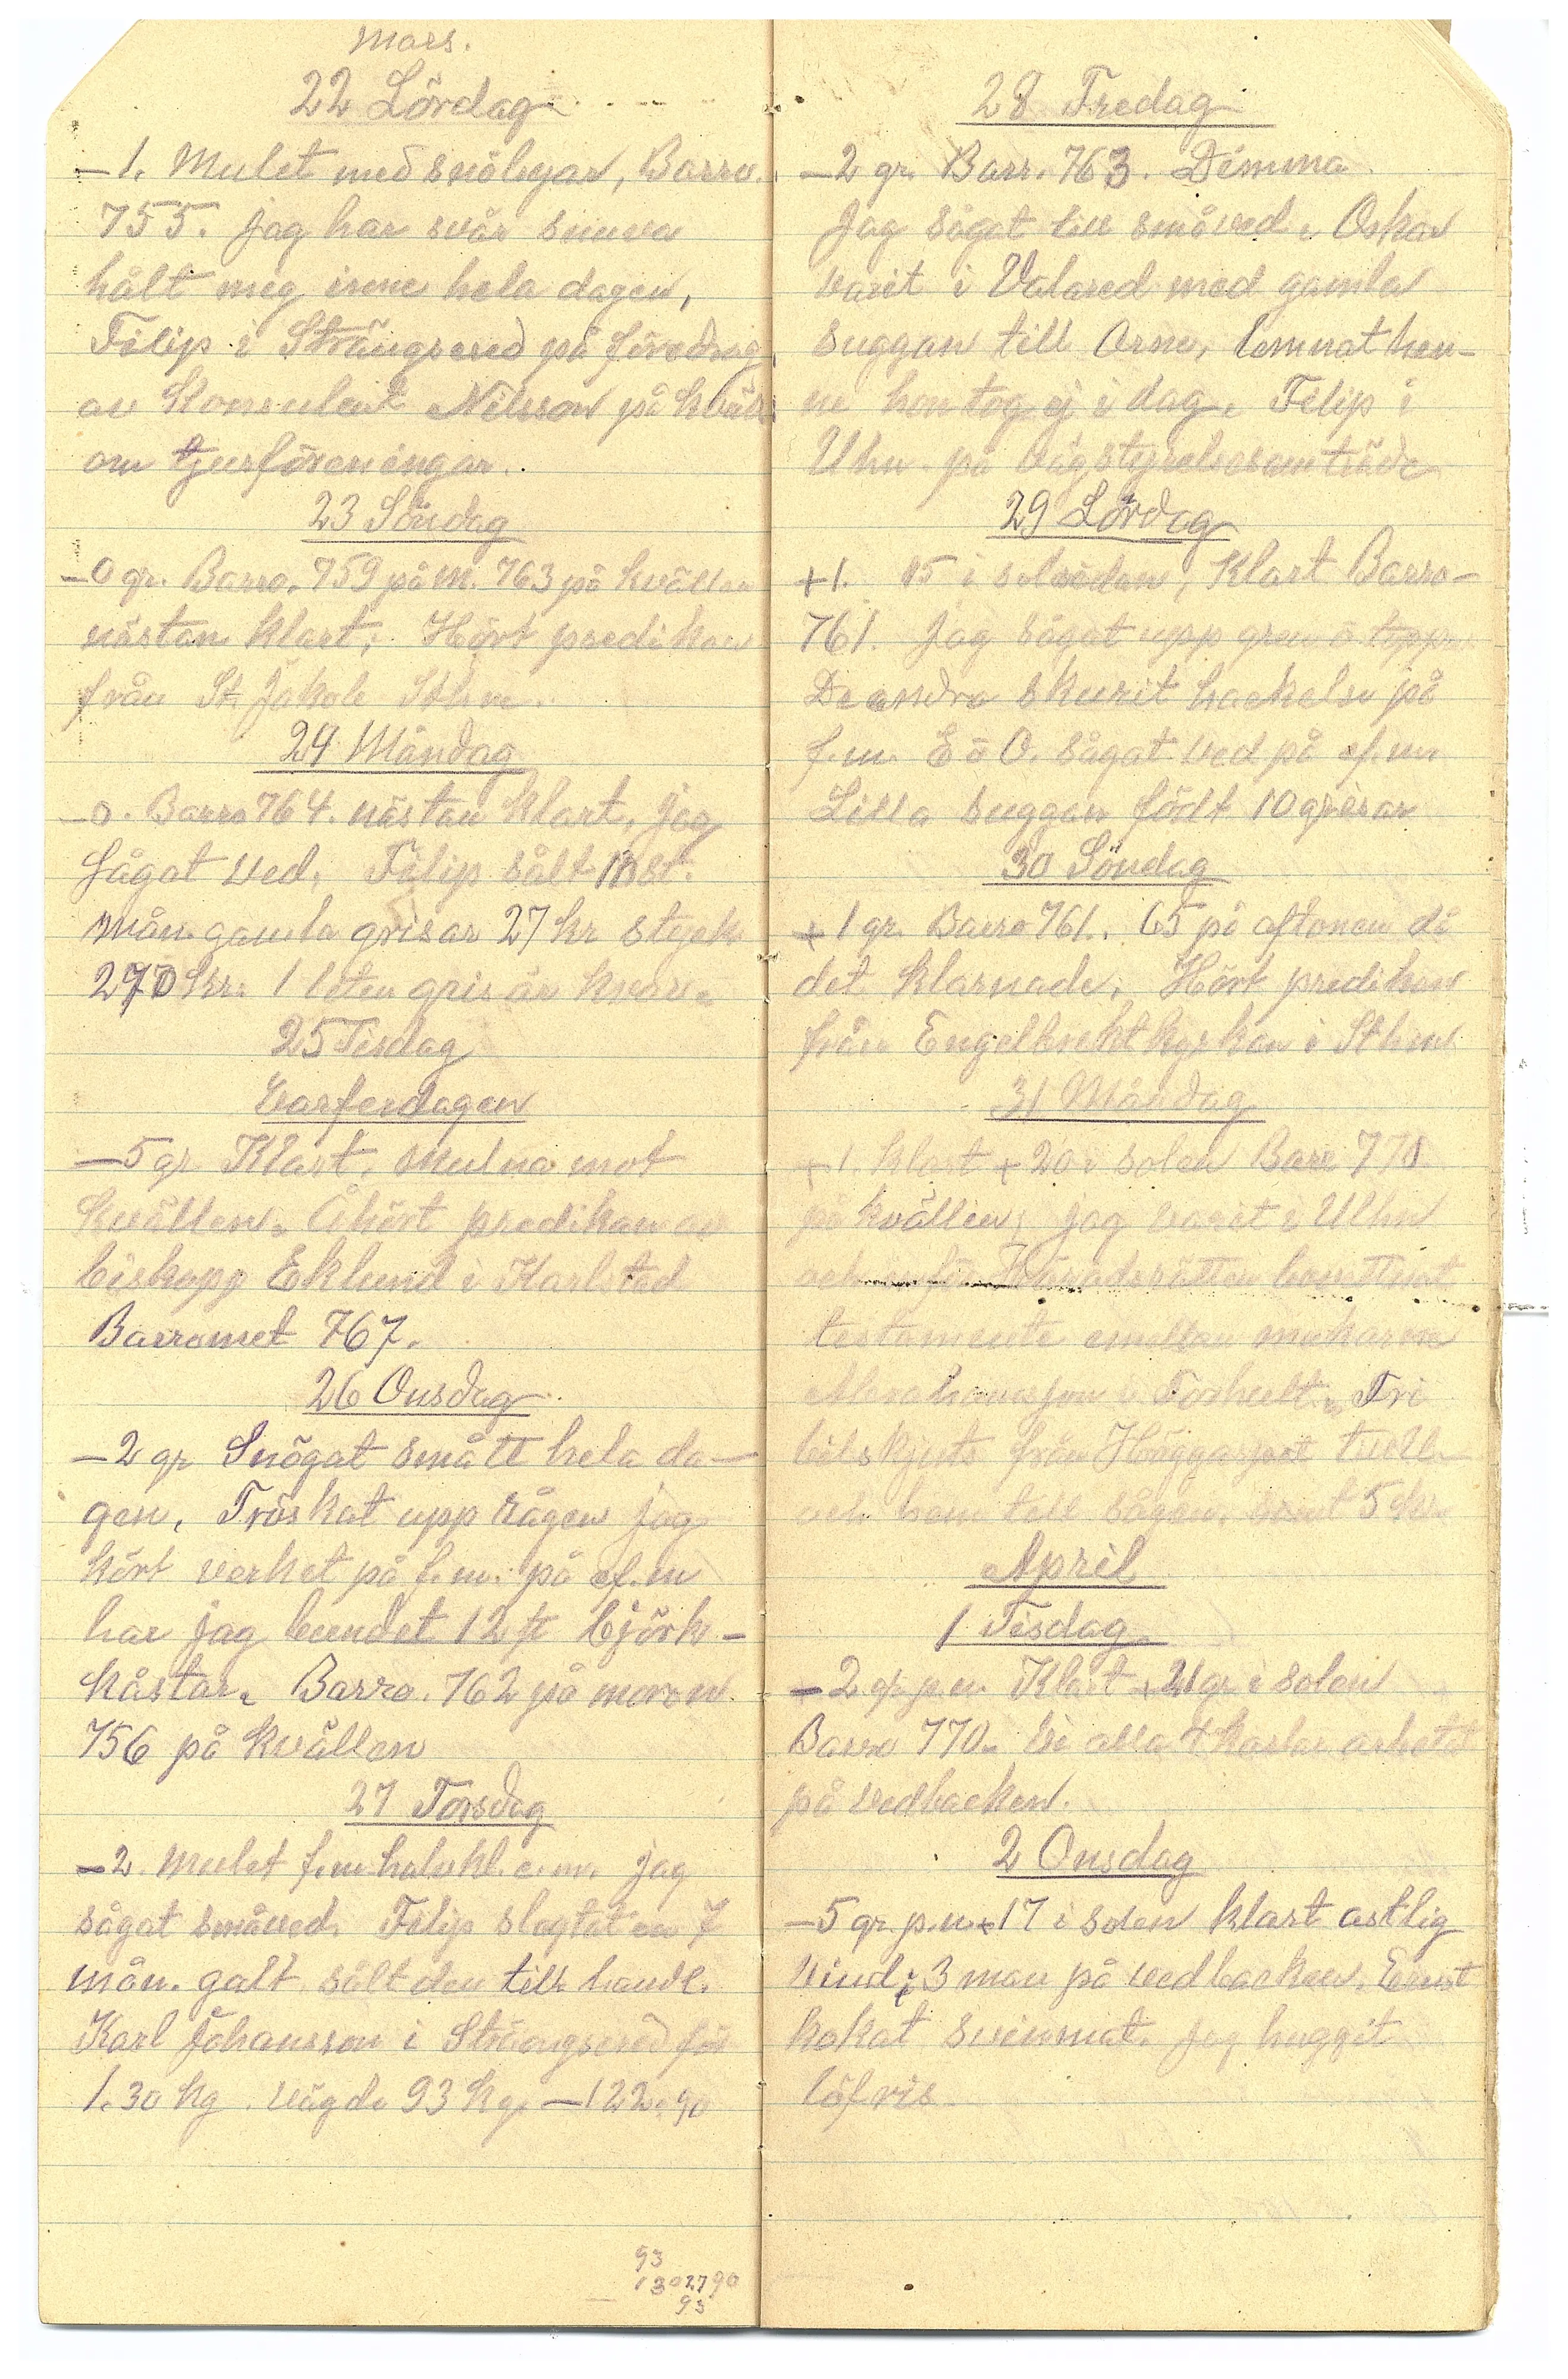 Mars.
22 Lördag
–1. Mulet med snöbyar, Barro.
755. jag har svår snuva
hålt meg inne hela dagen,
Filip i Strängsered på föredrag
av Konsulent Nilsson på kväll
om tjurföreningar.
23 Söndag
–0 gr. Barro. 759 på m. 763 på kvällen
nästan klart, Hört predikan
från St. Jakob Sthm.
24 Måndag
–0. Barro 764. nästan klart, jag
sågat ved, Filip sålt 10 st.
mån. gamla grisar 27 kr styck
270 kr. 1 liten gris är kvar.
25 Tisdag
Varfrudagen
–5 gr Klart, mulna mot
kvällen. Åhört predikan av
biskopp Eklund i Karlstad
Barromet 767.
26 Onsdag
–2 gr Snögat smått hela da–
gen, Tröskat upp rågen jag
kört verket på f.m. på ef.m
har jag bundet 12 st björk–
kåstar. Barro. 762 på moron
756 på kvällen
27 Torsdag
–2. Mulet f.m halvkl. e.m. jag
sågat småved. Filip slagtat en 7
mån. galt sålt den till handl.
Karl Johansson i Strängsered för
1.30 kg. vägde 93 kg. –122.90
93
130 2790
93
28 Fredag
–2 gr. Barr. 763. Dimma
Jag sågat till småved. Oskar
varit i Valared med gamla
suggan till Orne, lemnat hen–
ne hon tog ej i dag. Filip i
Uhn på vägstyrelsesamträde
29 Lördag
+1. 15 i solsidan, Klart Barro–
761. Jag sågat upp gren o topp
De andra skurit hackelse på
f.m. E o O. sågat ved på ef.m.
Lilla suggan födt 10 grisar
30 Söndag
+1 gr. Barro 761. 65 på aftonen då
det klarnade, Hört predikan
från Engelbrekt kyrkan i Sthm
31 Måndag
+1. klart +20 i solen Barr 770
på kvällen, jag varit i Ulhn
och inför Häradsrätten bevittnat
testamente emellan makarna
Abrahamsson i Torhult. Fri
bilskjuts från Höggarpet tur
och hem till sågen. samt 5 kr
April
1 Tisdag
–2 gr. p.m. Klart +21 gr i solen
Barro 770. Vi alla 4 karlar arbetat
på vedbacken.
2 Onsdag
–5 gr. p.m. +17 i solen klart astlig
vind, 3 man på vedbacken, Ernst
kokat svinmat. jag huggit
löfris